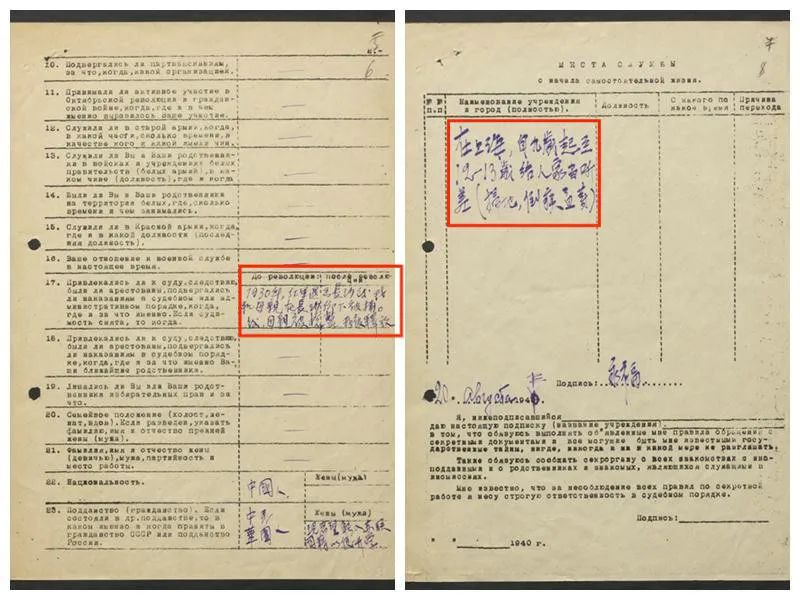 6
10. Подвергались ли партвзысканиям,
за что,когда,какой организацией.
11. Принимали ли активное участие в
Октябрьской революции и граждан-
ской войне,когда,где и в чем
именно выражалось Ваше участие.
12. Служили ли в старой армии,когда,
в какой части,сколько времени,в
качестве кого и какой имели чин.
13. Служили ли Вы и Ваши родственни-
ки в войсках и учреждениях белых
правительств (белых армий),в ка-
ком чине (должность),где и когда
14. Были ли Вы и Ваши родственники
на территории белых,где,сколько
времени и чем занимались.
15. Служили ли в Красной армии,когда
где и в какой должности (послед-
няя должность).
16. Ваше отношение к военной службе
в настоящее время.
До революции: после револю-
ции
17. Привлекались ли к суду,следствию,
были ли арестованы,подвергались
ли наказаниям в судебном или ад-
министративном порядке,когда,
где и за что именно.Если суди-
мость снята, то когда.
1930年,
18. Привлекались ли к суду,следствию,
были ли арестованы,подвергались
ли наказаниям в судебном поряд-
ке,когда,где и за что именно Ва-
ши ближайшие родственники.
19. Лишались ли Вы или Ваши родст-
венники избирательных прав и за
что.
20. Семейное положение (холост,же-
нат,вдов).Если разведен,указать
фамилию,имя и отчество прежней
жены (мужа).
21. Фамилия,имя и отчество жены
(девичью),мужа,партийность и
место работы.
22. Национальность.
中國人
Жены(мужа)
23. Подданство (гражданство). Если
состояли в др.подданстве,то в
каком именно и когда приняты в
гражданство СССР или подданство
России.
中民
華國人
Жены (мужа)
8
МЕСТА СЛУЖБЫ
с начала самостоятельной жизни.
№№
п.п.
Наименование учреждения
и город (полностью).
Должность
С какого по
какое время
Причина
перехода
在上海,自九歲起至
12-13歲給人家當听
差(掃地,倒痰盂等)
20 августа
Подпись:
Я, нижеподписавшийся
даю настоящую подписку (название учреждения)
в том, что обязуюсь выполнять объявленные мне правила обращения с
секретными документами и все могущие быть мне известными госу-
дарственные тайны, нигде, никогда и ни в какой мере не разглашать.
Также обязуюсь сообщать секроргану о всех знакомствах с ино-
подданными и о родственниках и знакомых, являющихся служащими в
иномиссиях.
Мне известно, что за несоблюдение всех правил по секретной
работе я несу строгую ответственность в судебном порядке.
Подпись:
" " 1940 г.